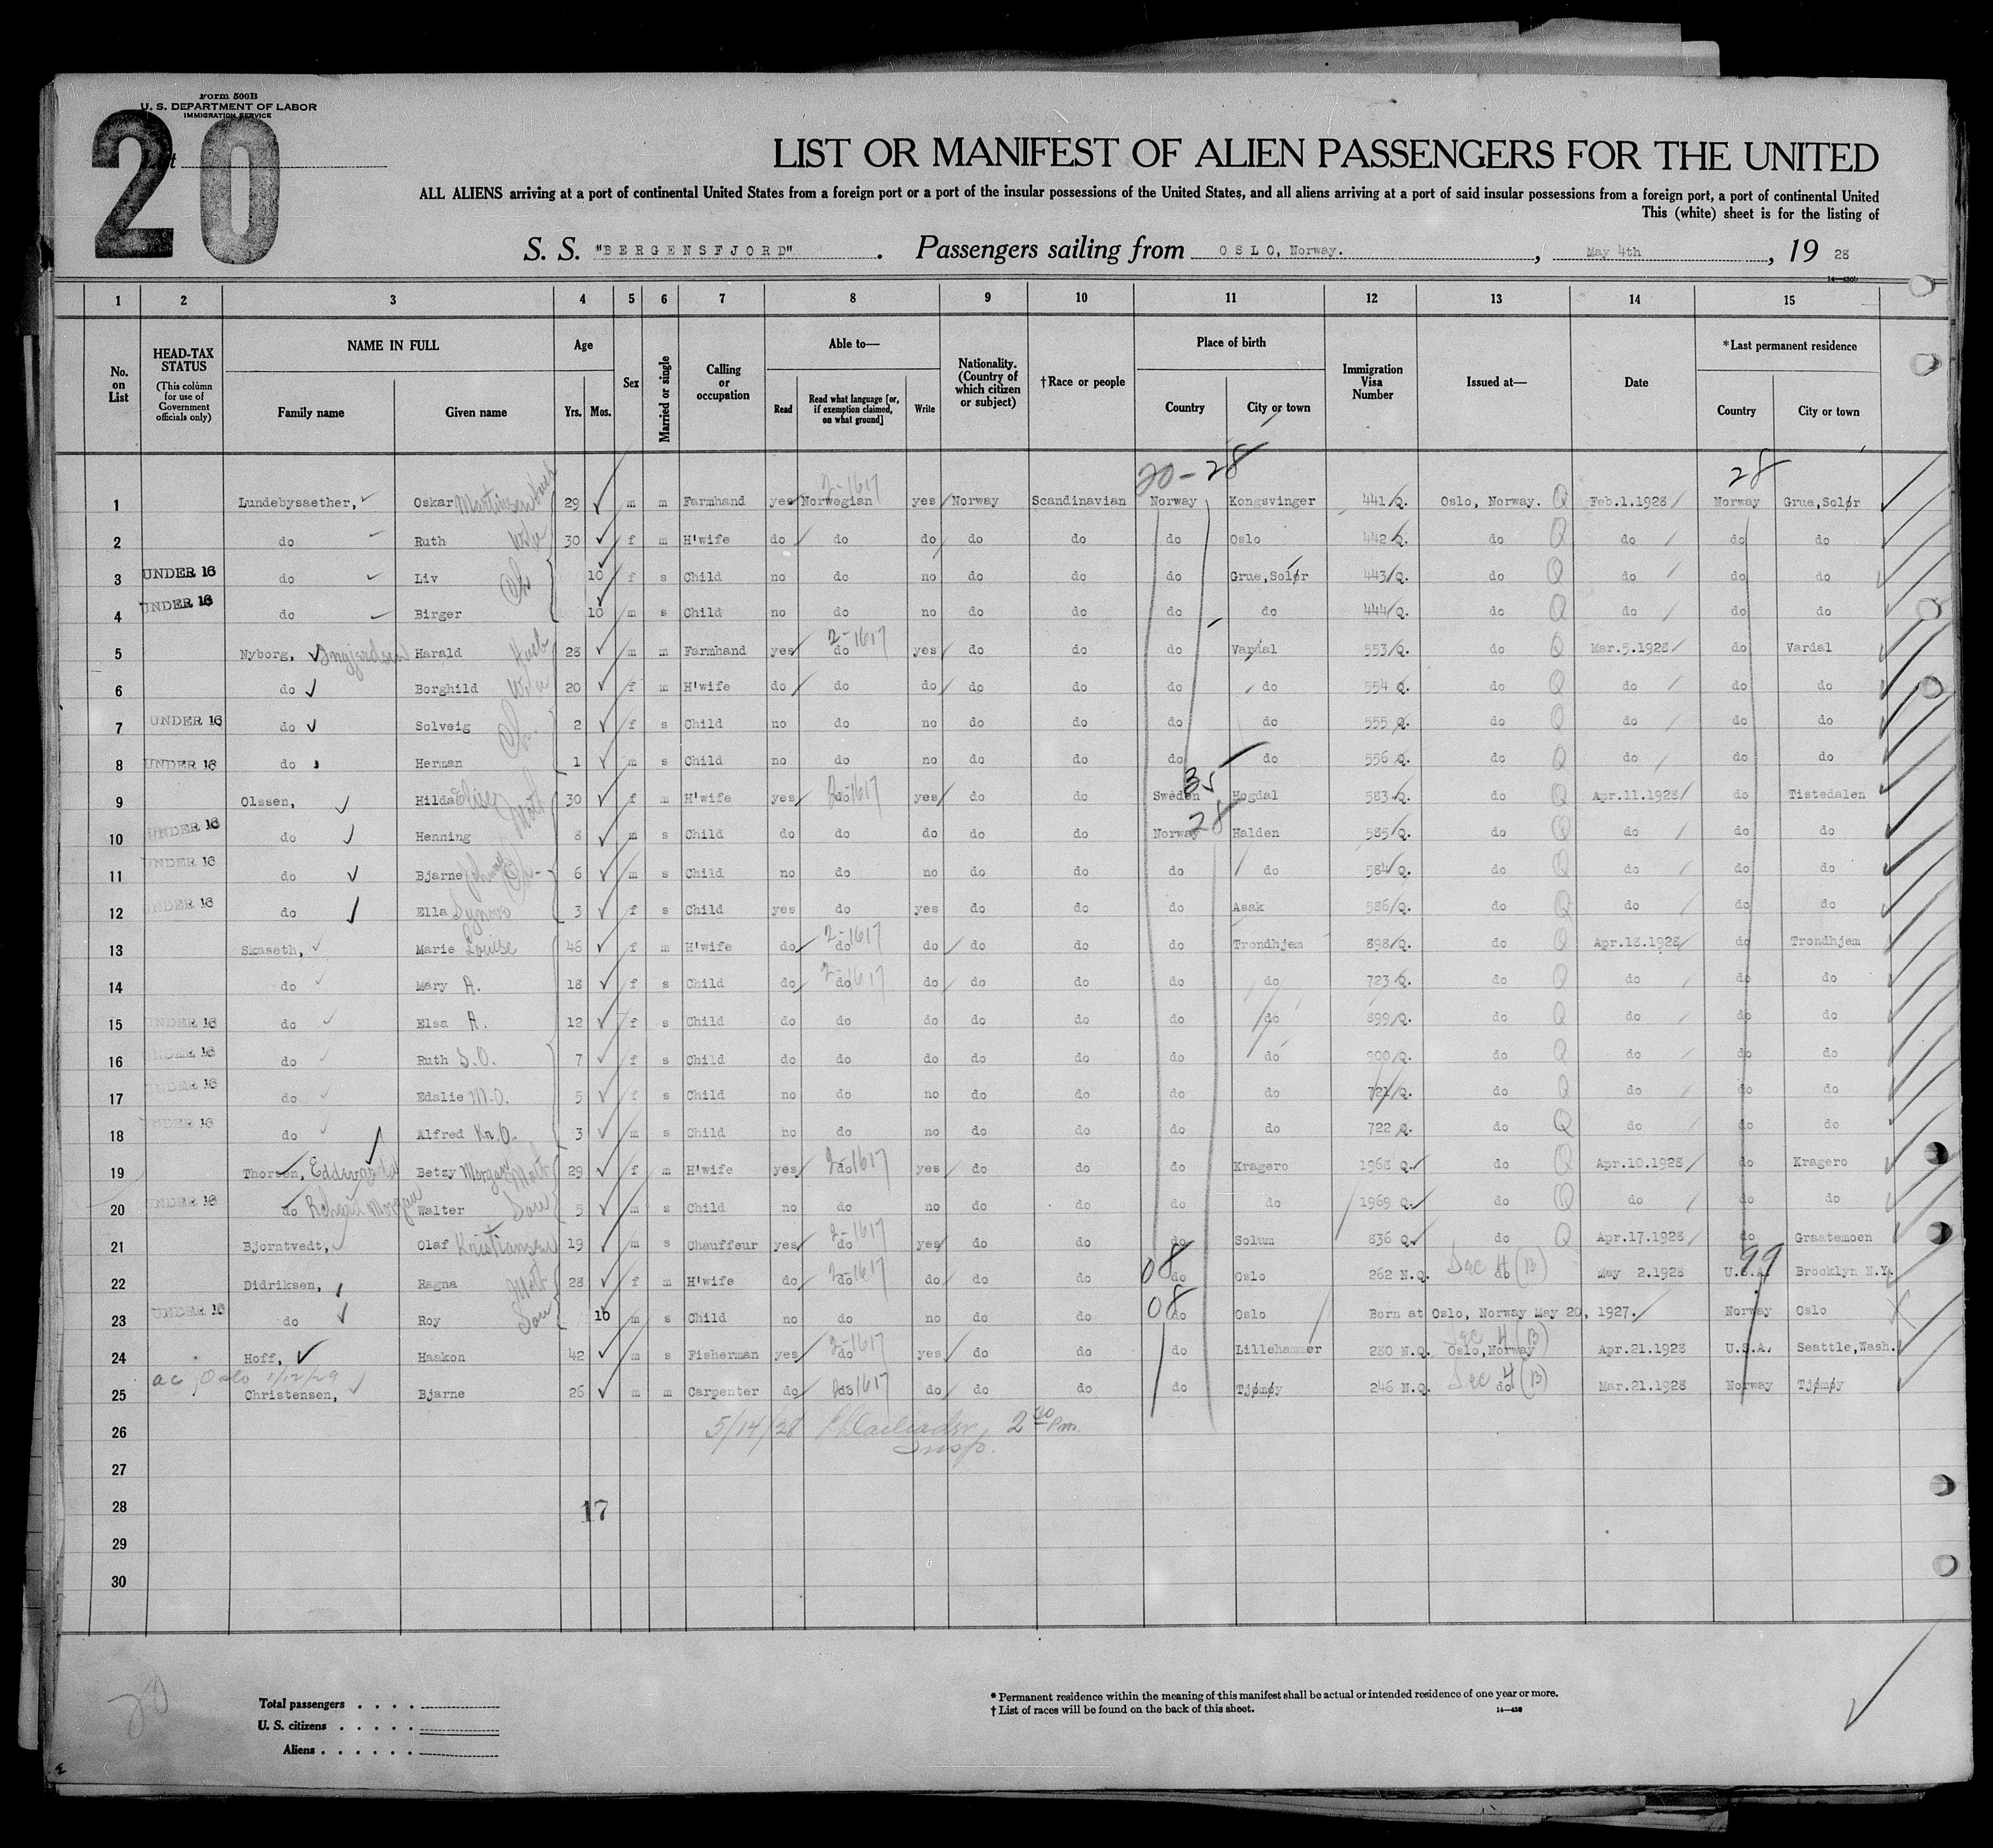 Form 500B
U. S. DEPARTMENT OF LABOR
IMMIGRATION SERVICE
20
LIST OR MANIFEST OF ALIEN PASSENGERS FOR THE UNITED
ALL ALIENS arriving at a port of continental United States from a foreign port or a port of the insular possessions of the United States, and all aliens arriving at a port of said insular possessions from a foreign port, a port of continental United
This (white) sheet is for the listing of
S. S. "BERGENSFJORD". Passengers sailing from OSLO, Norway. , May 4th , 19 28
1 2 3 4 5 6 7 8 9 10 11 12 13 14 15
No. on List
HEAD-TAX STATUS (This column for use of Government officials only)
NAME IN FULL
Family name Given name
Age
Yrs. Mos.
Sex
Married or single
Calling or occupation
Able to—
Read Read what language [or, if exemption claimed, on what ground] Write
Nationality. (Country of which citizen or subject)
†Race or people
Place of birth
Country City or town
Immigration Visa Number
Issued at—
Date
*Last permanent residence
Country City or town
20-28 28
1 Lundebysaether, Oskar Martinsen 29 m m Farmhand yes Norwegian 2-1617 yes Norway Scandinavian Norway Kongsvinger 441/Q. Oslo, Norway. Q Feb.1.1928 Norway Grue,Solør
2 do Ruth Wife 30 f m H'wife do do do do do do Oslo 442 Q. do Q do do do
3 UNDER 16 do Liv Ch 10 f s Child no do no do do do Grue,Solør 443/Q. do Q do do do
4 UNDER 16 do Birger 10 m s Child no do no do do do do 444/Q. do Q do do do
5 Nyborg, Harald Husb 28 m m Farmhand yes do 2-1617 yes do do do Vardal 553/Q. do Q Mar.5.1928 do Vardal
6 do Borghild Wife 20 f m H'wife do do do do do do do 554 Q. do Q do do do
7 UNDER 16 do Solveig Ch. 2 f s Child no do no do do do do 555 Q. do Q do do do
8 UNDER 16 do Herman 1 m s Child no do no do do do do 556 Q. do Q do do do
9 Olssen, Hilda Elise Moth 30 f m H'wife yes do 2-1617 yes do do Sweden 35 Hogdal 583 Q. do Q Apr.11.1928 do Tistedalen
10 UNDER 16 do Henning 8 m s Child do do do do do Norway 28 Halden 585/Q. do Q do do do
11 UNDER 16 do Bjarne Johnny Ch- 6 m s Child no do no do do do do 584/Q. do Q do do do
12 UNDER 16 do Ella Synove 3 f s Child yes do yes do do do Asak 586/Q. do Q do do do
13 Skaseth, Marie Louise 46 f m H'wife do do 2-1617 do do do do Trondhjem 898/Q. do Q Apr.18.1928 do Trondhjem
14 do Mary A. 18 f s Child do do 2-1617 do do do do do 723 Q. do Q do do do
15 UNDER 16 do Elsa A. 12 f s Child do do do do do do do 899/Q. do Q do do do
16 UNDER 16 do Ruth S.O. 7 f s Child do do do do do do do 900/Q. do Q do do do
17 UNDER 16 do Edalie M.O. 5 f s Child no do no do do do do 721/Q. do Q do do do
18 UNDER 16 do Alfred Kr.O. 3 m s Child no do no do do do do 722 Q. do Q do do do
19 Thorsen, Eddevarda Betzy Morgan Moth 29 f m H'wife yes do 2-1617 yes do do do Kragero 1968 Q. do Q Apr.10.1928 do Kragero
20 UNDER 16 do Richard Morgan Walter Son 5 m s Child no do no do do do do 1969 Q. do Q do do do
21 Bjorntvedt, Olaf Kristiansen 19 m s Chauffeur yes do 2-1617 yes do do do Solum 836 Q. do Q Apr.17.1928 do Graatemoen
22 Didriksen, Ragna Moth 28 f m H'wife do do 2-1617 do do do 08 do Oslo 262 N.Q. do Sec 4 (B) May 2.1928 U.S.A. 99 Brooklyn N.Y.
23 UNDER 16 do Roy Son 10 m s Child no do no do do 08 do Oslo Born at Oslo, Norway May 20, 1927. Norway Oslo
24 Hoff, Haakon 42 m s Fisherman yes do 2-1617 yes do do do Lillehammer 280 N.Q. Oslo,Norway Sec 4 (B) Apr.21.1928 U.S.A. Seattle,Wash.
ac Oslo 1/12/29
25 Christensen, Bjarne 26 m m Carpenter do do 2-1617 do do do do Tjømøy 246 N.Q. do Sec 4 (B) Mar.21.1928 Norway Tjømøy
26 5/14/28 Insp. 2 30 Pm.
27
28 17
29
30
20
Total passengers . . . .
U. S. citizens . . . . .
Aliens . . . . . .
* Permanent residence within the meaning of this manifest shall be actual or intended residence of one year or more.
† List of races will be found on the back of this sheet.